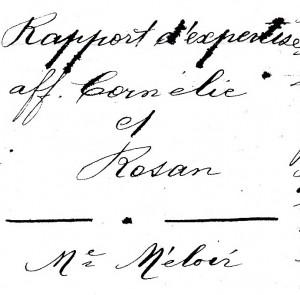 Rapport d'expertise
aff. Cornélie
et
Rosan
Me Méloir